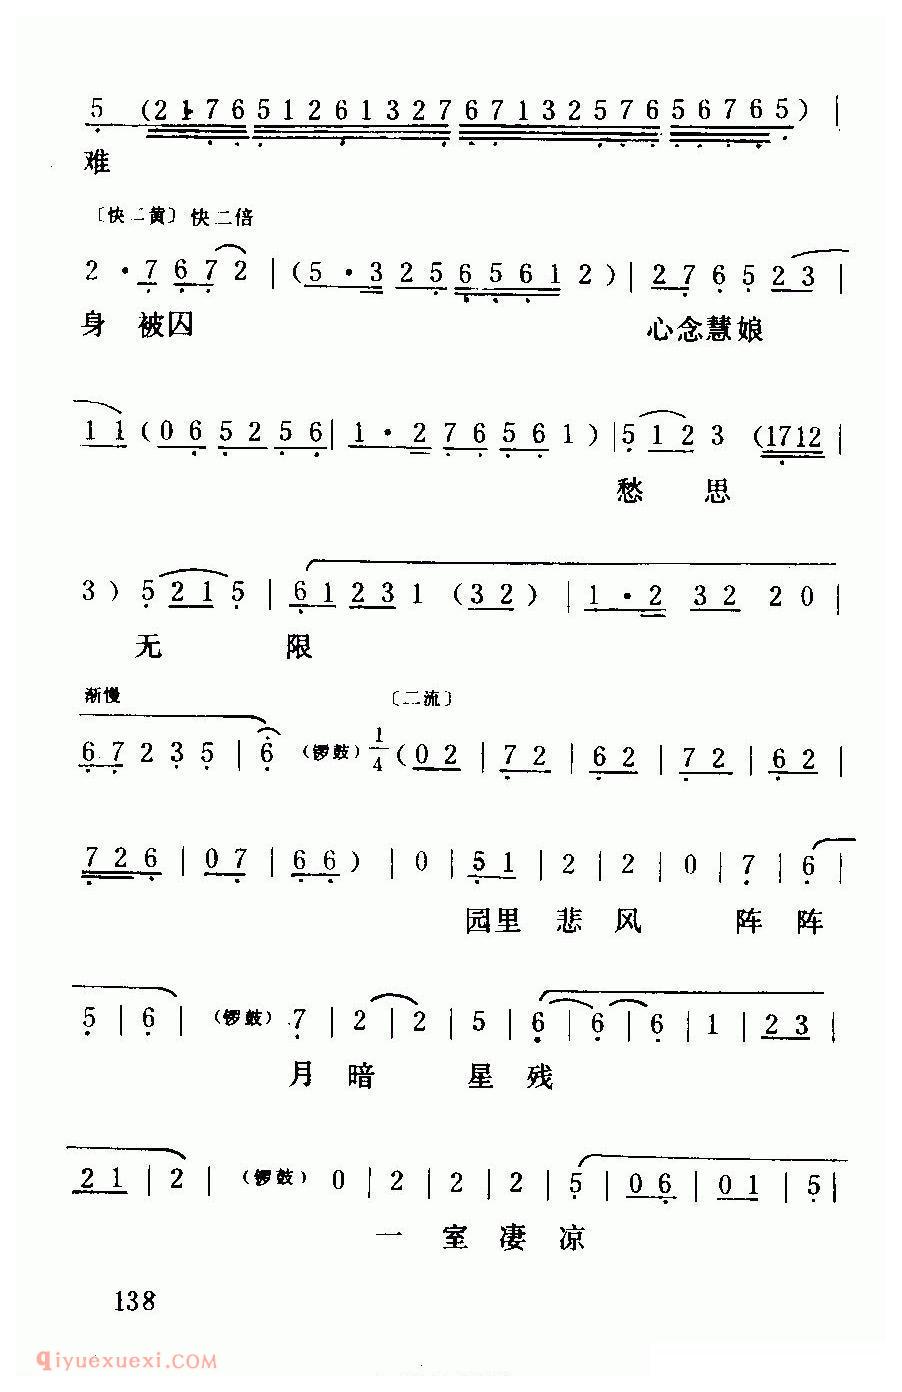 5 (2176 51261327 6713257656765) |
难
〔快二黄〕快二倍
2 · 7 6 7 2 | (5 · 3 2 5 6 5 6 1 2) | 2 7 6 5 2 3 |
身 被囚 心念慧娘
1 1 (0 6 5 2 5 6 | 1 · 2 7 6 5 6 1) | 5 1 2 3 (1712 |
愁 思
3) 5 2 1 5 | 6 1 2 3 1 (3 2) | 1 · 2 3 2 2 0 |
无 限
渐慢 〔二流〕
6 7 2 3 5 | 6 (锣鼓) 1/4 (0 2 | 7 2 | 6 2 | 7 2 | 6 2 |
7 2 6 | 0 7 | 6 6) | 0 | 5 1 | 2 | 2 | 0 | 7 | 6 |
园里 悲 风 阵 阵
5 | 6 | (锣鼓) 7 | 2 | 2 | 5 | 6 | 6 | 6 | 1 | 2 3 |
月 暗 星 残
2 1 | 2 | (锣鼓) 0 | 2 | 2 | 2 | 5 | 0 6 | 0 1 | 5 |
一 室 凄 凉
138
qiyuexuexi.com